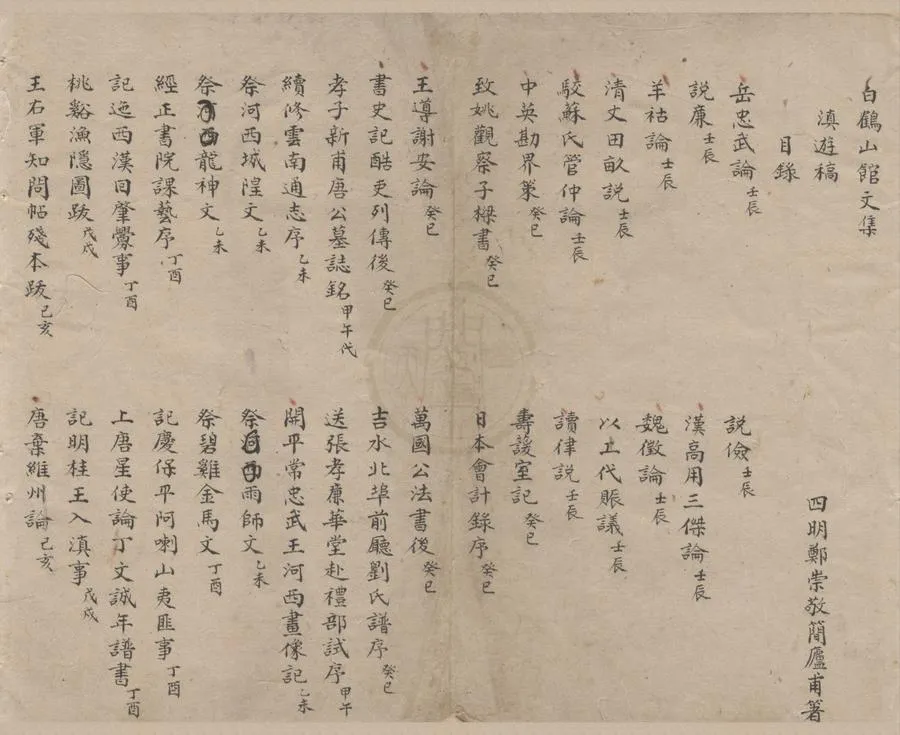 白鶴山館文集
滇遊稿
四明鄭崇敬簡廬甫著
目錄
岳忠武論壬辰
說儉壬辰
說廉壬辰
漢高用三傑論壬辰
羊祜論壬辰
魏徵論壬辰
清丈田畝說壬辰
以工代賑議壬辰
駮蘇氏管仲論壬辰
讀律說壬辰
中英勘界策癸巳
壽護室記癸巳
致姚觀察子樑書癸巳
日本會計錄序癸巳
王導謝安論癸巳
萬國公法書後癸巳
書史記酷吏列傳後癸巳
吉水北埠前廳劉氏譜序癸巳
孝子新甫唐公墓誌銘甲午代
送張孝廉華堂赴禮部試序甲午
續修雲南通志序乙未
開平常忠武王河西畫像記乙未
祭河西城隍文乙未
祭雨師文乙未
祭龍神文乙未
祭碧雞金馬文丁酉
經正書院課藝序丁酉
記慶保平阿喇山夷匪事丁酉
記迤西漢回肇釁事丁酉
上唐星使論丁文誠年譜書丁酉
桃谿漁隱圖跋戊戌
記明桂王入滇事戊戌
王右軍知問帖殘本跋己亥
唐棄維州論己亥